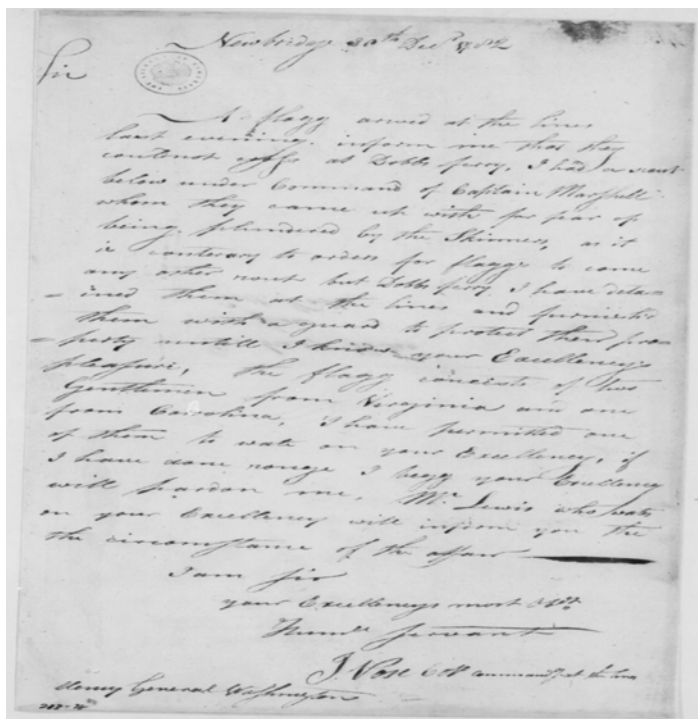 Newbridge 30th Decr 1782
Sir
A flagg arived at the lines
last evening. inform me that they
could not pass at Dobbs ferry, I had a scout
below under Command of Captain Marshell
whom they came up with for fear of
being plundered by the Skinners, as it
is conterary to orders for flaggs to come
any other rout but Dobbs ferry. I have deta=
=ined them at the lines and furnish'd
them with a guard to protect their pro=
=perty untill I know your Excellencys
pleasure, the flagg consists of two
Gentlemen from Virginia and one
from Carolina, I have permitted one
of them to wate on your Excellency, if
I have done ronge I begg your Excellency
will pardon me, Mr Lewis who wates
on your Excellency will inform you the
the circumstance of the affair
I am Sir
your Excellencys most Obt
Humle Servant
J Vose Coll commandt at the lines
General Washington